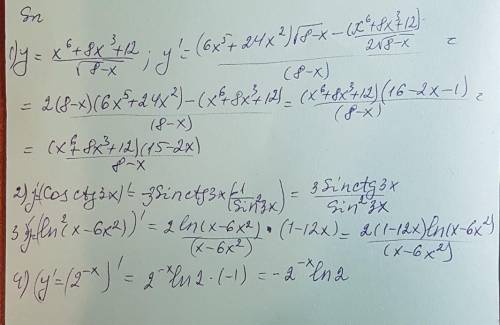 Sn
1) y = (x⁶+8x³+12)/√(8-x) ; y' = ((6x⁵+24x²)√(8-x) - (x⁶+8x³+12)/(2√(8-x)))/(8-x) =
= (2(8-x)(6x⁵+24x²)-(x⁶+8x³+12))/(8-x) = ((x⁶+8x³+12)(16-2x-1))/(8-x) =
= ((x⁶+8x³+12)(15-2x))/(8-x)
2) y'=(Cos ctg3x)' = -3 Sin ctg3x(-1/Sin²3x) = (3 Sin ctg3x)/(Sin²3x)
3) y'=(ln²(x-6x²))' = (2 ln(x-6x²))/(x-6x²) • (1-12x) = (2(1-12x)ln(x-6x²))/(x-6x²)
4) (y'=(2⁻ˣ)' = 2⁻ˣ ln2 · (-1) = -2⁻ˣ ln2